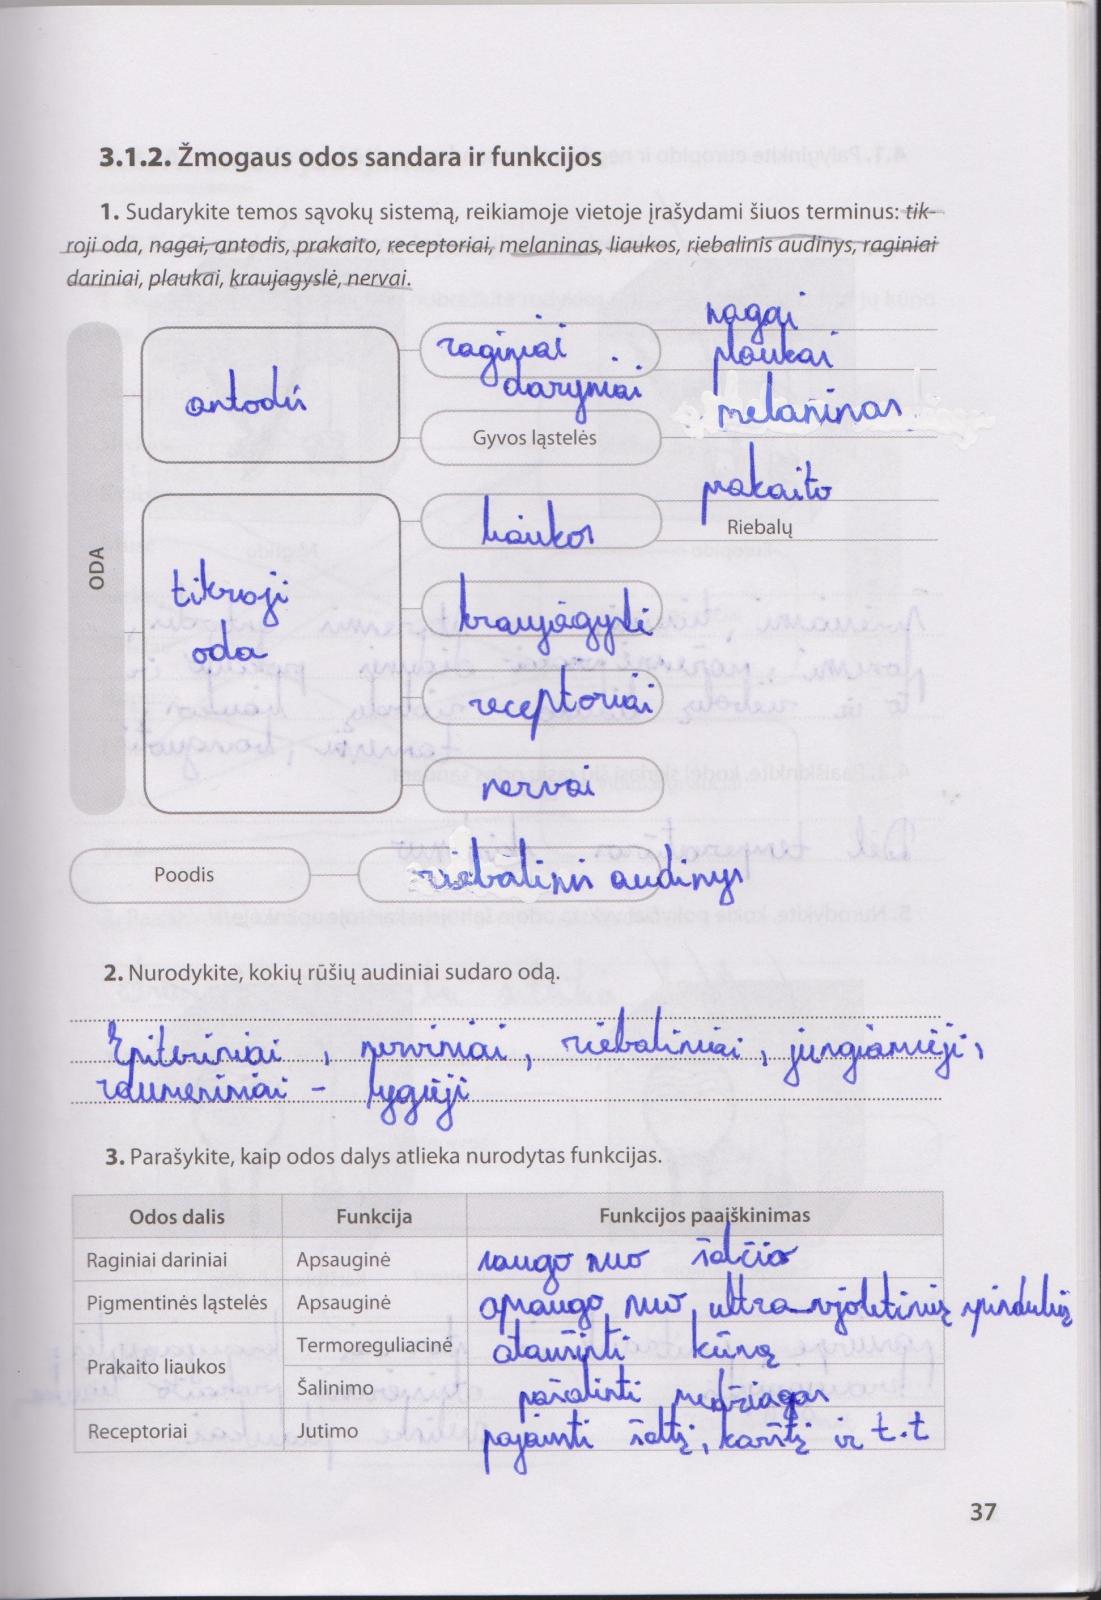 3.1.2. Žmogaus odos sandara ir funkcijos
1. Sudarykite temos sąvokų sistemą, reikiamoje vietoje įrašydami šiuos terminus: tik-
roji oda, nagai, antodis, prakaito, receptoriai, melaninas, liaukos, riebalinis audinys, raginiai
dariniai, plaukai, kraujagyslė, nervai.
ODA
antodis
raginiai
daryniai
nagai
plaukai
Gyvos ląstelės
melaninas
tikroji
oda
liaukos
prakaito
Riebalų
kraujagyslė
receptoriai
nervai
Poodis
riebalinis audinys
2. Nurodykite, kokių rūšių audiniai sudaro odą.
Epiteriniai, nerviniai, riebaliniai, jungiamieji,
raumeniniai – lygieji
3. Parašykite, kaip odos dalys atlieka nurodytas funkcijas.
Odos dalis Funkcija Funkcijos paaiškinimas
Raginiai dariniai Apsauginė saugo nuo šalčio
Pigmentinės ląstelės Apsauginė apsaugo nuo ultra-vjoletinių spindulių
Prakaito liaukos Termoreguliacinė ataušinti kūną
Šalinimo pašalinti medžiagas
Receptoriai Jutimo pajausti šaltį, karštį ir t.t
37